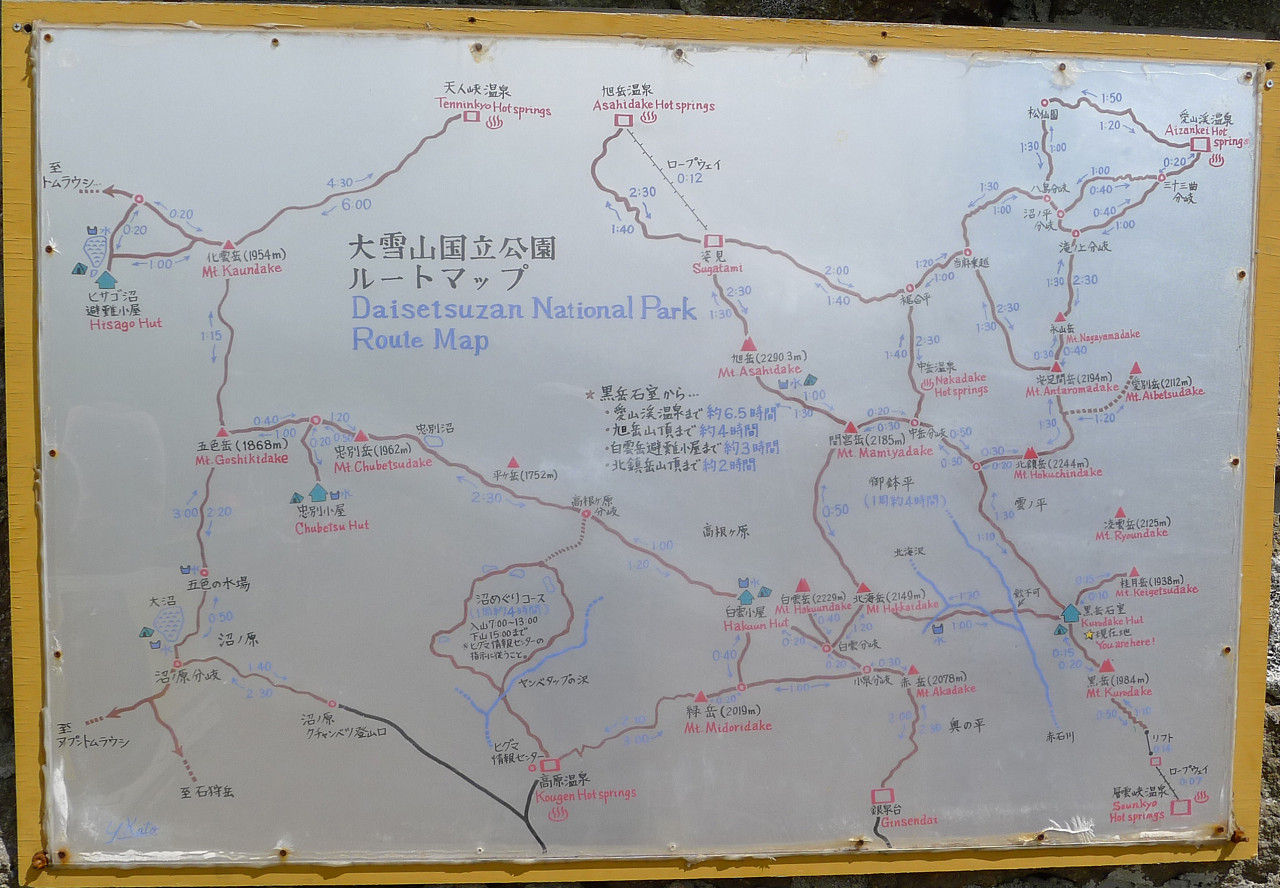 天人峡温泉
Tenninkyo Hot springs
旭岳温泉
Asahidake Hot springs
ロープウェイ
0:12
松仙園
1:50
1:20
愛山渓温泉
Aizankei Hot
springs
0:20
1:30
1:00
至
トムラウシ
4:30
6:00
2:30
1:40
1:30
1:00
八島分岐
1:00
0:40
三十三曲
分岐
沼ノ平
分岐
0:40
1:00
滝ノ上分岐
0:20
0:20
水
1:00
化雲岳 (1954m)
Mt. Kaundake
ヒサゴ沼
避難小屋
Hisago Hut
大雪山国立公園
ルートマップ
Daisetsuzan National Park
Route Map
姿見
Sugatami
2:00
1:40
1:20
1:00
当麻乗越
裾合平
2:30
1:30
1:30
2:30
永山岳
Mt. Nagayamadake
0:30
0:40
2:30
1:30
1:15
旭岳 (2290.3m)
Mt. Asahidake
水
1:00
1:30
2:30
1:40
中岳温泉
Nakadake
Hot springs
安足間岳 (2194m)
Mt. Antaromadake
愛別岳 (2112m)
Mt. Aibetsudake
1:30
黒岳石室から…
・愛山渓温泉まで 約6.5時間
・旭岳山頂まで 約4時間
・白雲岳避難小屋まで 約3時間
・北鎮岳山頂まで 約2時間
0:40
1:00
1:20
0:50
0:20
五色岳 (1868m)
Mt. Goshikidake
忠別岳 (1962m)
Mt. Chubetsudake
忠別沼
水
忠別小屋
Chubetsu Hut
平ヶ岳 (1752m)
2:30
0:20
0:30
間宮岳 (2185m)
Mt. Mamiyadake
中岳分岐
0:50
0:30
0:20
0:30
北鎮岳 (2244m)
Mt. Hokuchindake
御鉢平
(1周約4時間)
雲ノ平
高根ヶ原
分岐
高根ヶ原
1:00
1:20
0:50
1:30
1:10
凌雲岳 (2125m)
Mt. Ryoundake
3:00
2:20
水
五色の水場
大沼
0:50
水
沼ノ原
沼ノ原分岐
沼めぐりコース
(1周約4時間)
入山7:00~13:00
下山15:00まで
※ヒグマ情報センターの
指示に従うこと。
ヤンベタップの沢
水
白雲小屋
Hakuun Hut
白雲岳 (2229m)
Mt. Hakuundake
北海岳 (2149m)
Mt. Hokkaidake
北海沢
0:40
1:20
0:20
白雲分岐
1:30
1:00
水
0:15
0:10
桂月岳 (1938m)
Mt. Keigetsudake
黒岳石室
Kurodake Hut
現在地
You are here!
0:15
0:20
黒岳 (1984m)
Mt. Kurodake
1:40
2:30
0:40
0:20
1:00
0:20
0:30
小泉分岐
赤岳 (2078m)
Mt. Akadake
至
ヌプントムラウシ
沼ノ原
クチャンベツ登山口
緑岳 (2019m)
Mt. Midoridake
奥の平
赤石川
0:50
リフト
ロープウェイ
0:07
ヒグマ
情報センター
高原温泉
Kougen Hot springs
至石狩岳
銀泉台
Ginsendai
層雲峡温泉
Sounkyo
Hot springs